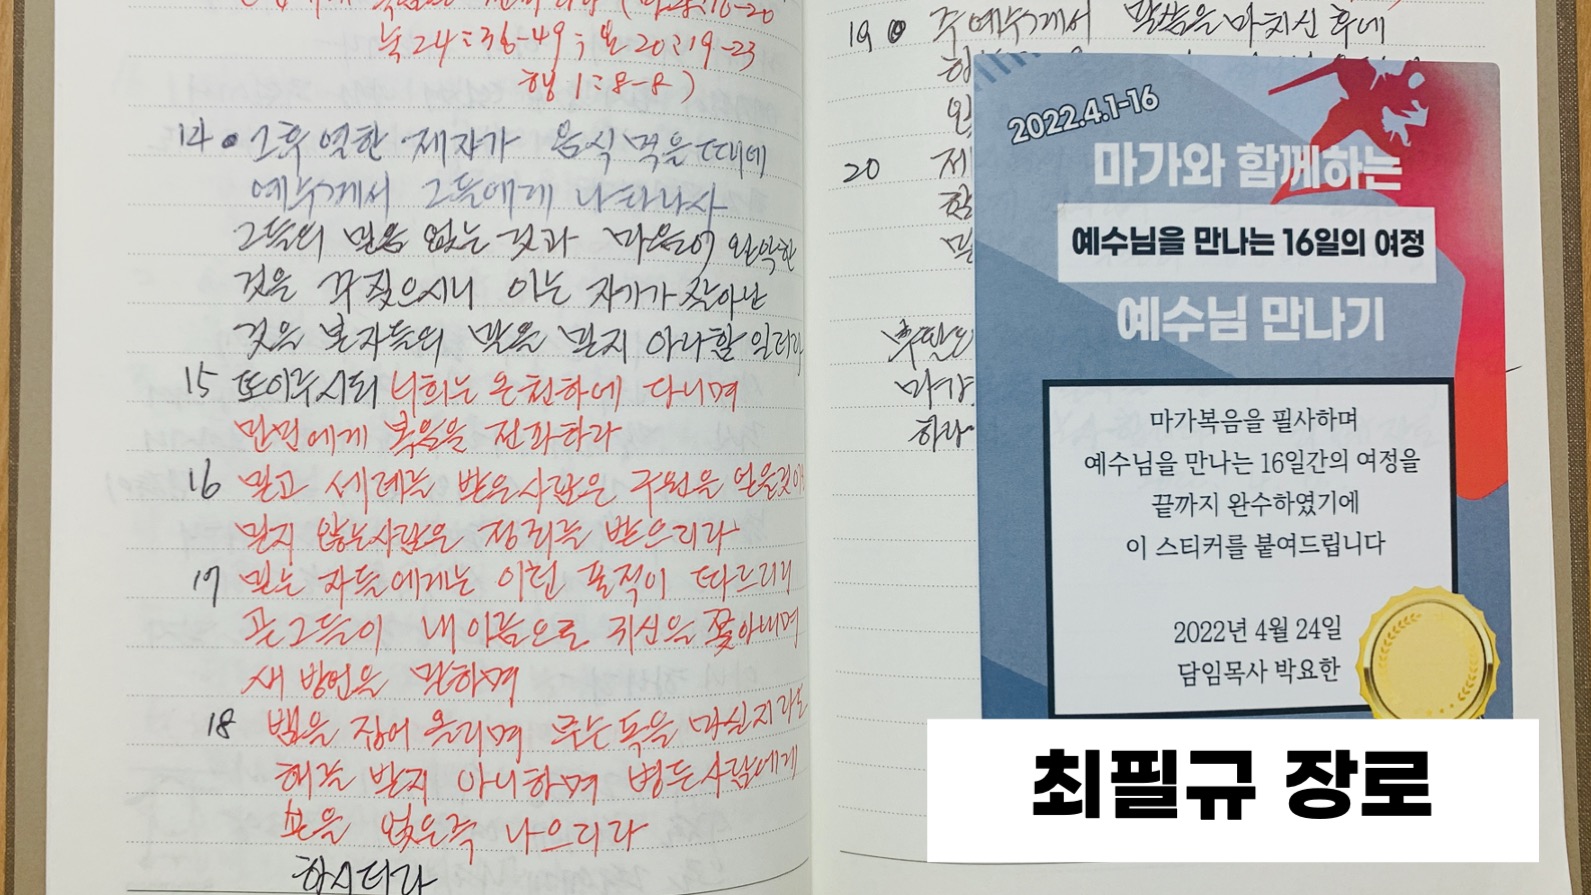 눅 24:36-49; 요 20:19-23
행 1:8-8)
14 • 그후 열한 제자가 음식 먹을 때에
예수께서 그들에게 나타나사
그들의 믿음 없는 것과 마음이 완악한
것을 꾸짖으시니 이는 자기가 살아난
것을 본자들의 말을 믿지 아니할 일러라
15 또이루시되 너희는 온천하에 다니며
만민에게 복음을 전파하라
16 믿고 세례를 받은사람은 구원을 얻을것이
믿지 않는사람은 정죄를 받으리라
17 믿는 자들에게는 이런 표적이 따르리니
곧그들이 내 이름으로 귀신을 쫓아내며
새 방언을 말하며
18 뱀을 집어 올리며 무슨독을 마실지라도
해를 받지 아니하며 병든사람에게
손을 얹은즉 나으리라
하시더라
19 • 주 예수께서 말씀을 마치신 후에
20 제
마가
하라
2022.4.1-16
마가와 함께하는
예수님을 만나는 16일의 여정
예수님 만나기
마가복음을 필사하며
예수님을 만나는 16일간의 여정을
끝까지 완수하였기에
이 스티커를 붙여드립니다
2022년 4월 24일
담임목사 박요한
최필규 장로